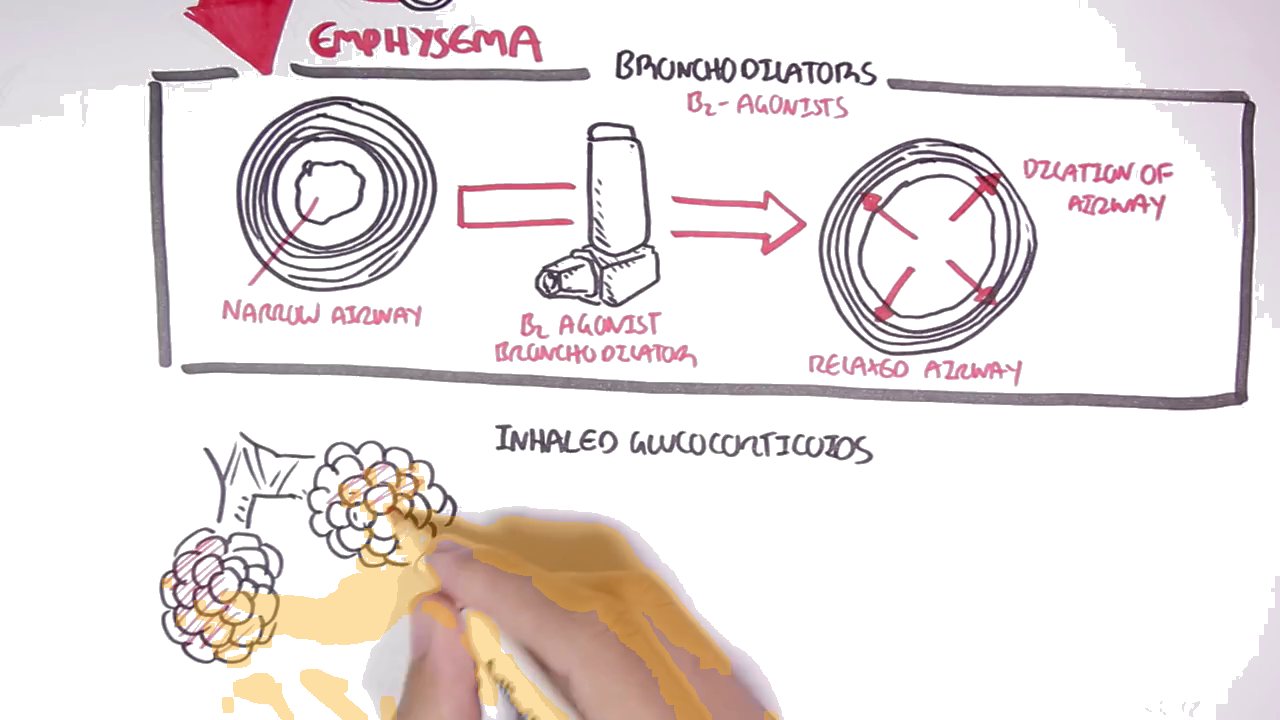 EMPHYSEMA
BRONCHODILATORS
B2-AGONISTS
NARROW AIRWAY
B2 AGONIST
BRONCHODILATOR
DILATION OF
AIRWAY
RELAXED AIRWAY
INHALED GLUCOCORTICOIDS